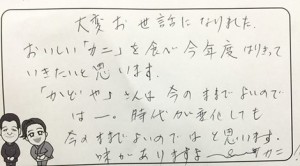 大変お世話になりました。
おいしい「カニ」を食べ今年度はりきって
いきたいと思います。
「かどや」さんは今のままでよいので
は一。時代が変化しても
今のままでよいのではと思います。
味がありますよ〜
カニ